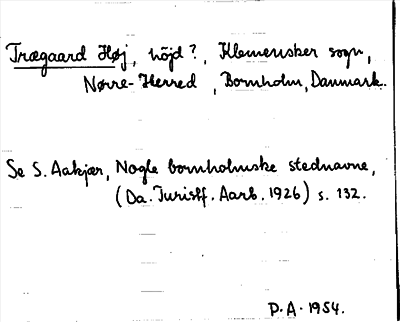 Trægaard Høj, höjd?, Klemensker sogn,
Nørre-Herred, Bornholm, Danmark.
Se S. Aakjær, Nogle bornholmske stednavne,
(Da. Turistf. Aarb. 1926) s. 132.
P.A. 1954.